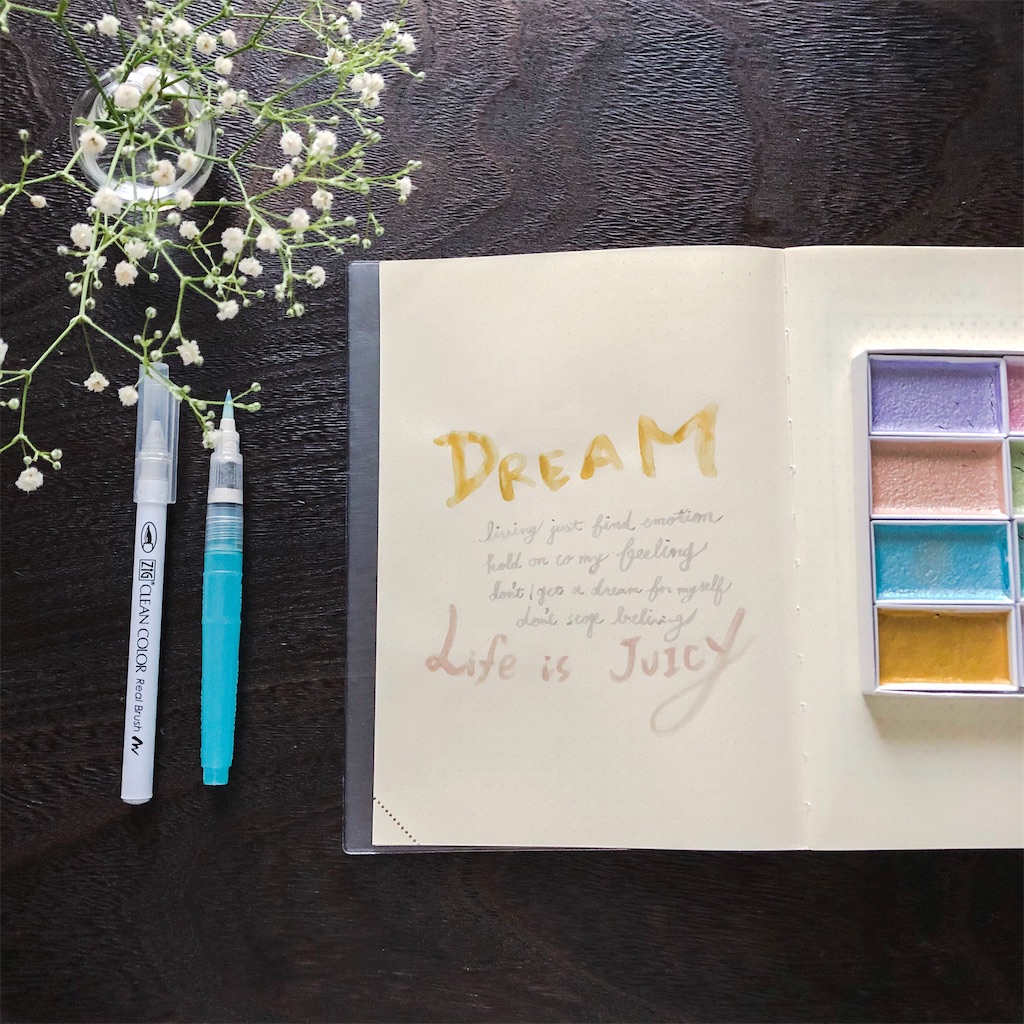 DREAM
living just find emotion
hold on to my feeling
don't I get a dream for myself
don't stop beliving
Life is JUICY
ZIG CLEAN COLOR Real Brush